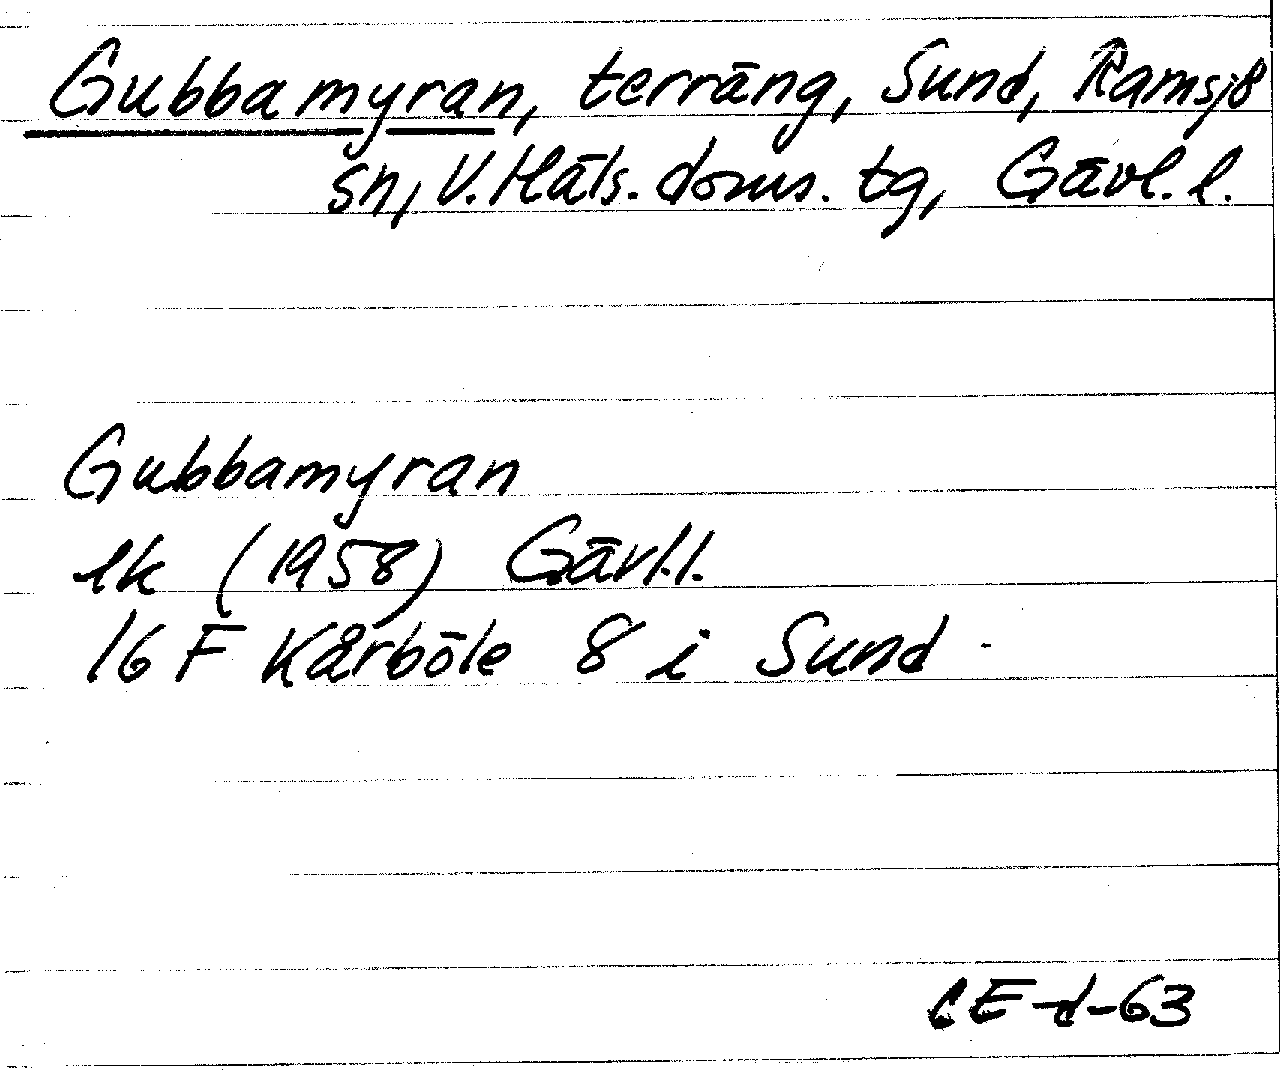 Gubbamyran, terräng, Sund, Ramsjö
sn, V. Häls. doms. tg, Gävl. l.
Gubbamyran
ek (1958) Gävl.l.
16 F Kårböle 8 i Sund
CE-d-63